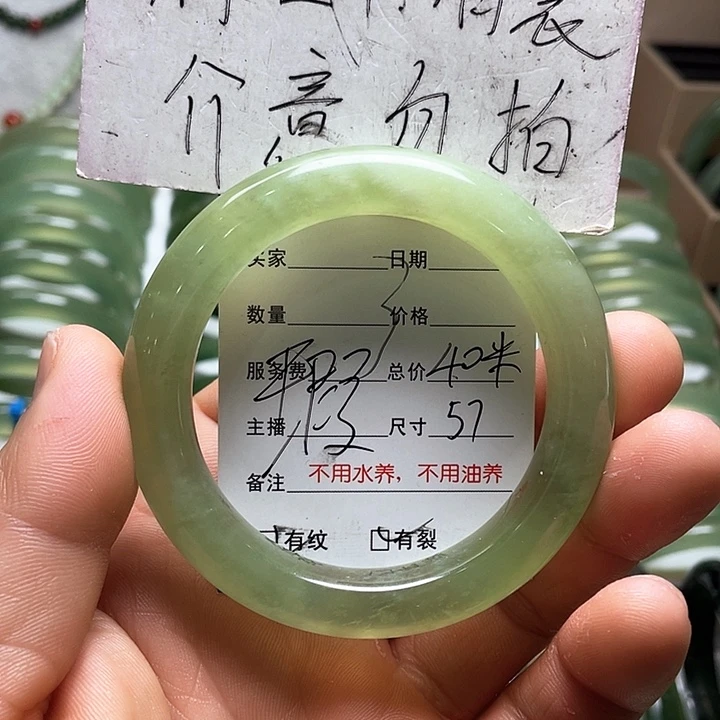 介意勿拍
买家 日期
数量 价格
服务费 总价 40米
主播 尺寸 57
备注 不用水养，不用油养
有纹 有裂